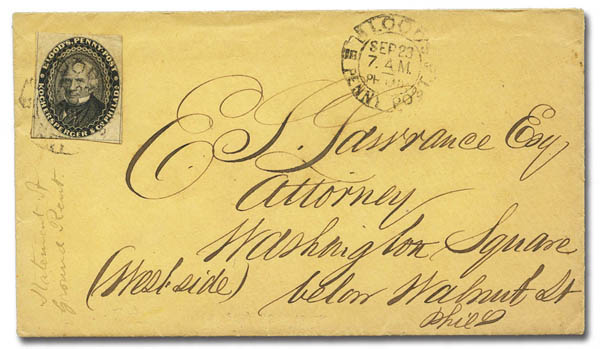 BLOOD'S PENNY POST
KOCHERSPERGER & CO. PHILADA
BLOOD'S
SEP 23
7. A.M.
PHILADA
PENNY POST
E S Lawrance Esq
Attorney
Washington Square
(West-side) below Walnut St
Phila
Statement of
Ground Rent.